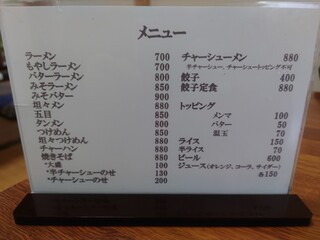 メニュー
ラーメン 700
もやしラーメン 700
バターラーメン 800
みそラーメン 850
みそバター 900
坦々メン 880
五目 850
タンメン 800
つけめん 850
坦々つけめん 880
チャーハン 880
焼きそば 880
・大盛 100
・半チャーシューのせ 130
・チャーシューのせ 200
チャーシューメン 880
半チャーシュー、チャーシュートッピング不可
餃子 400
餃子定食 880
トッピング
メンマ 100
のり 50
温玉 70
ライス 150
半ライス 70
ビール 600
ジュース(オレンジ、コーラ、サイダー)
各150